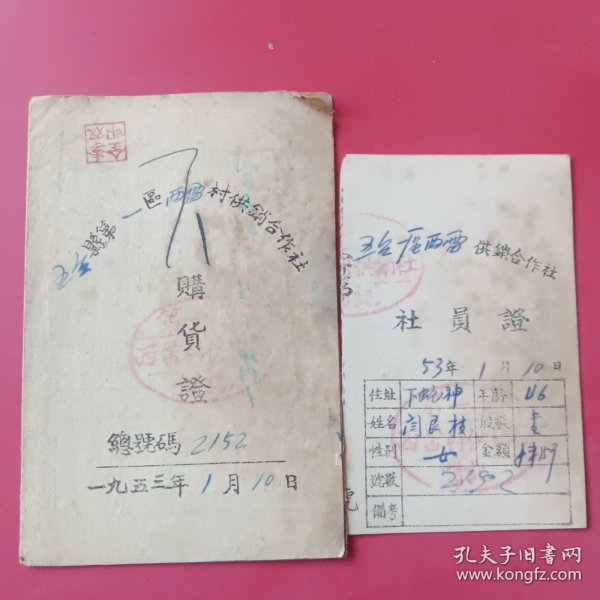 五台縣第一區西雷村供銷合作社
購貨證
總號碼 2152
一九五三年1月10日
五台一區西雷供銷合作社
社員證
53年1月10日
住址 神 年齡 46
姓名 閆良枝 股數 壹
性別 女 金額
號數 2152
備考
孔夫子旧书网
www.kongfz.com